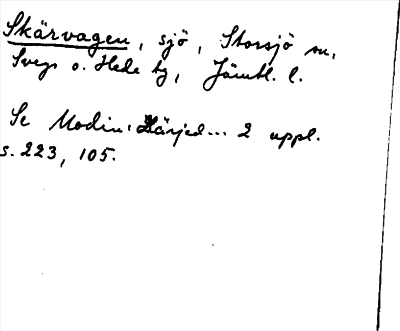 Skärvagen, sjö, Storsjö sn,
Svegs o. Hede tg, Jämtl. l.
Se Modin: Härjed... 2 uppl.
s. 223, 105.